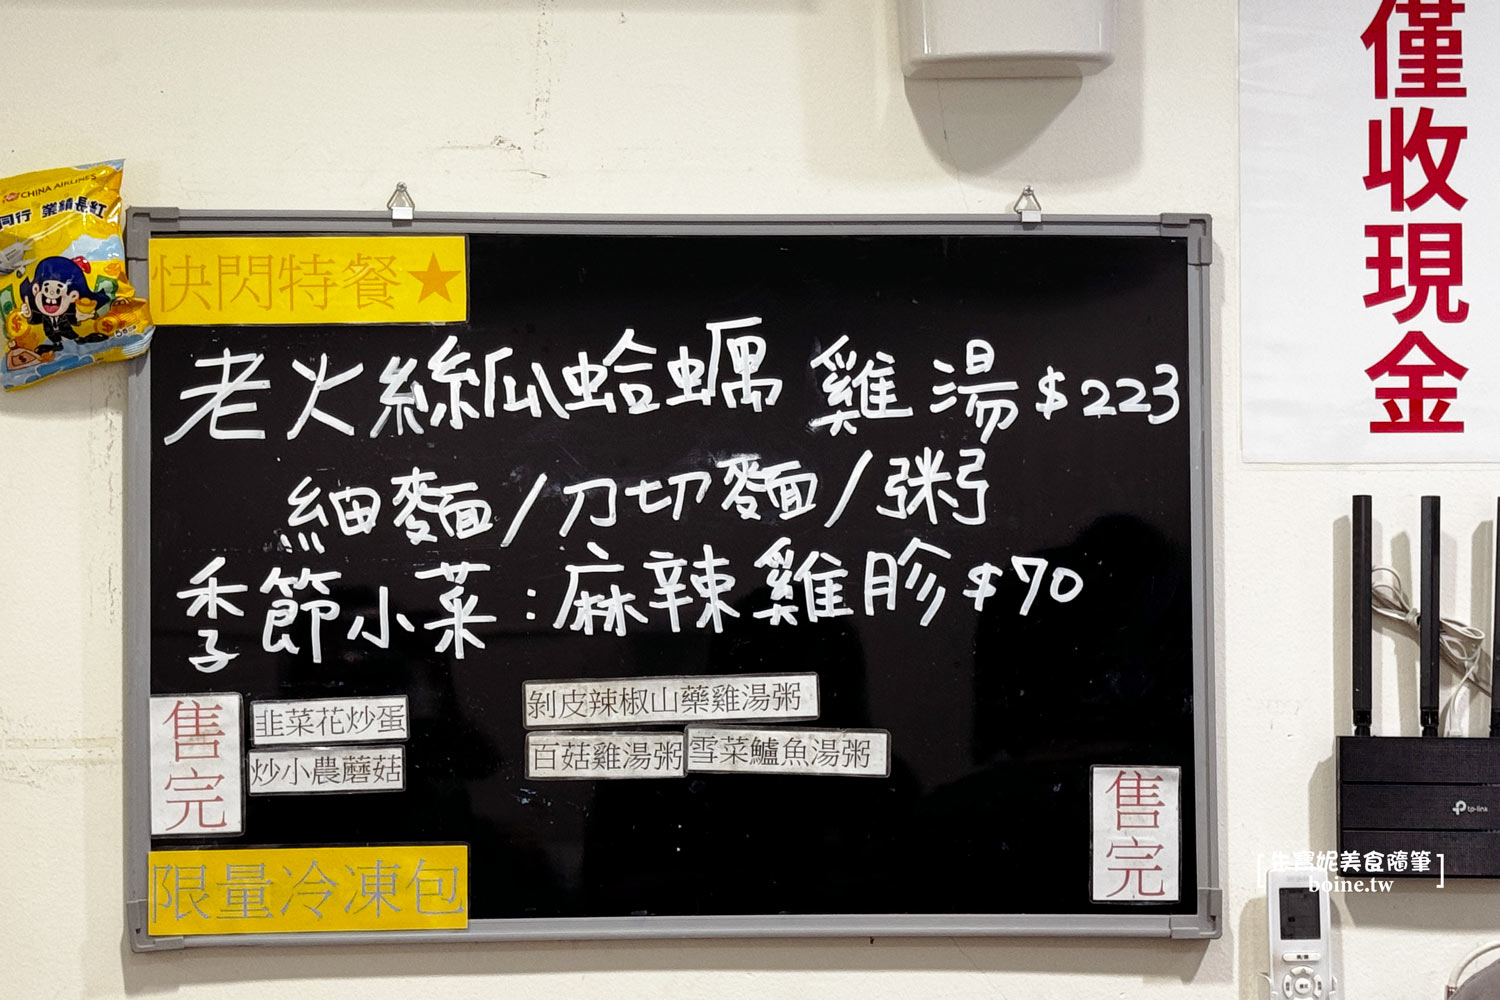 僅收現金
CHINA AIRLINES
同行 業績長紅
快閃特餐★
老火絲瓜蛤蠣 雞湯$223
細麵/刀切麵/粥
季節小菜:麻辣雞胗$70
售完
韭菜花炒蛋
炒小農蘑菇
剝皮辣椒山藥雞湯粥
百菇雞湯粥
雪菜鱸魚湯粥
售完
限量冷凍包
tp-link
[朱寶妮美食隨筆]
boine.tw